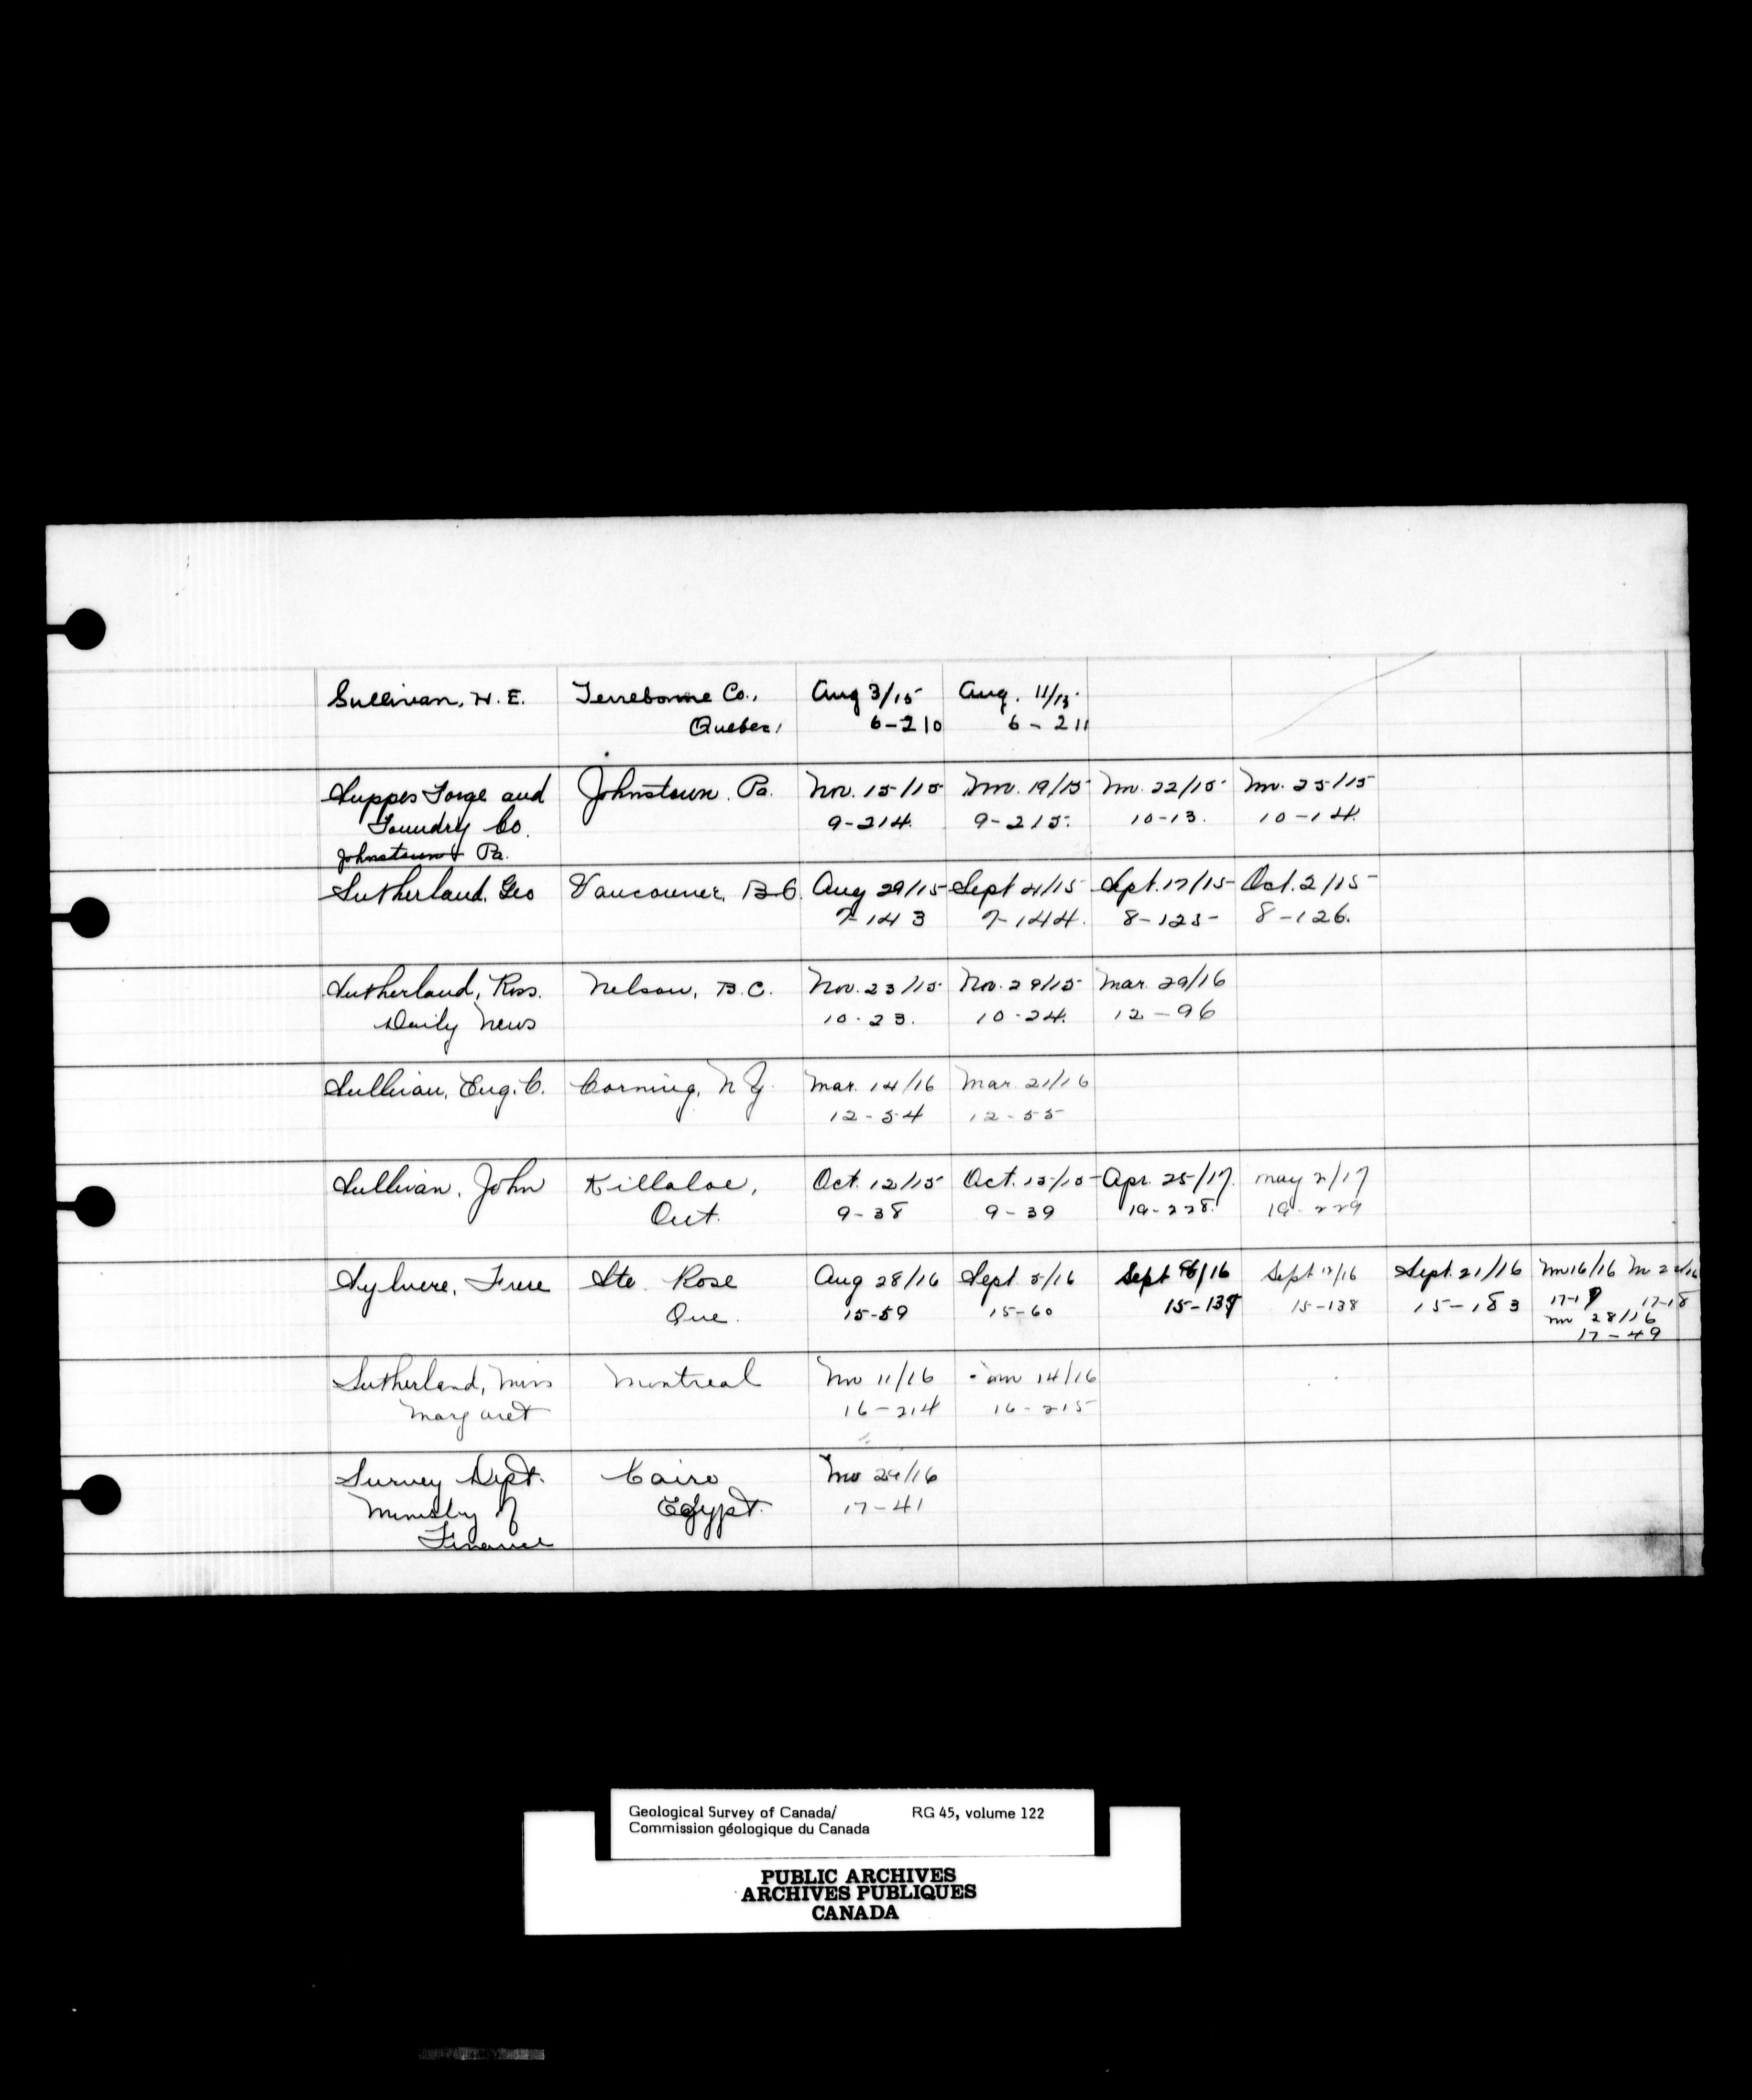 Sullivan, H. E. Terrebonne Co., Aug 3/15 Aug. 11/15
Quebec, 6-210 6-211
Suppes Forge and Johnstown. Pa. Nov. 15/15 Nov. 19/15 Nov. 22/15 Nov. 25/15
Foundry Co. 9-214. 9-215. 10-13. 10-14.
Johnstown Pa.
Sutherland, Geo Vancouver, B.C. Aug 29/15 Sept 4/15 Sept. 17/15 Oct. 2/15
7-143 7-144. 8-125 8-126.
Sutherland, Ross. Nelson, B.C. Nov. 23/15 Nov. 29/15 Mar. 29/16
Daily News 10-23. 10-24. 12-96
Sullivan, Eug. C. Corning, N.Y. Mar. 14/16 Mar. 21/16
12-54 12-55
Sullivan, John Killaloe, Oct. 12/15 Oct. 15/15 Apr. 25/17. May 2/17
Ont. 9-38 9-39 19-228. 19-229
Sylvere, Frere Ste. Rose Aug 28/16 Sept. 5/16 Sept /16 Sept 12/16 Sept. 21/16 Nov 16/16 Nov 22/16
Que. 15-59 15-60 15-137 15-138 15-183 17-17 17-18
Nov 28/16
17-49
Sutherland, Miss Montreal Nov 11/16 Nov 14/16
Margaret 16-214 16-215
Survey Dept. Cairo Nov 29/16
Ministry of Egypt. 17-41
Finance
Geological Survey of Canada/ RG 45, volume 122
Commission géologique du Canada
PUBLIC ARCHIVES
ARCHIVES PUBLIQUES
CANADA